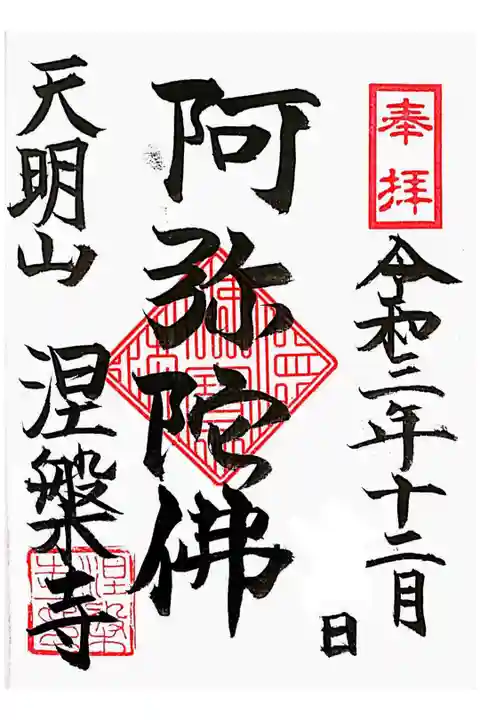 奉拝
令和三年十二月 日
阿弥陀佛
天明山 涅槃寺